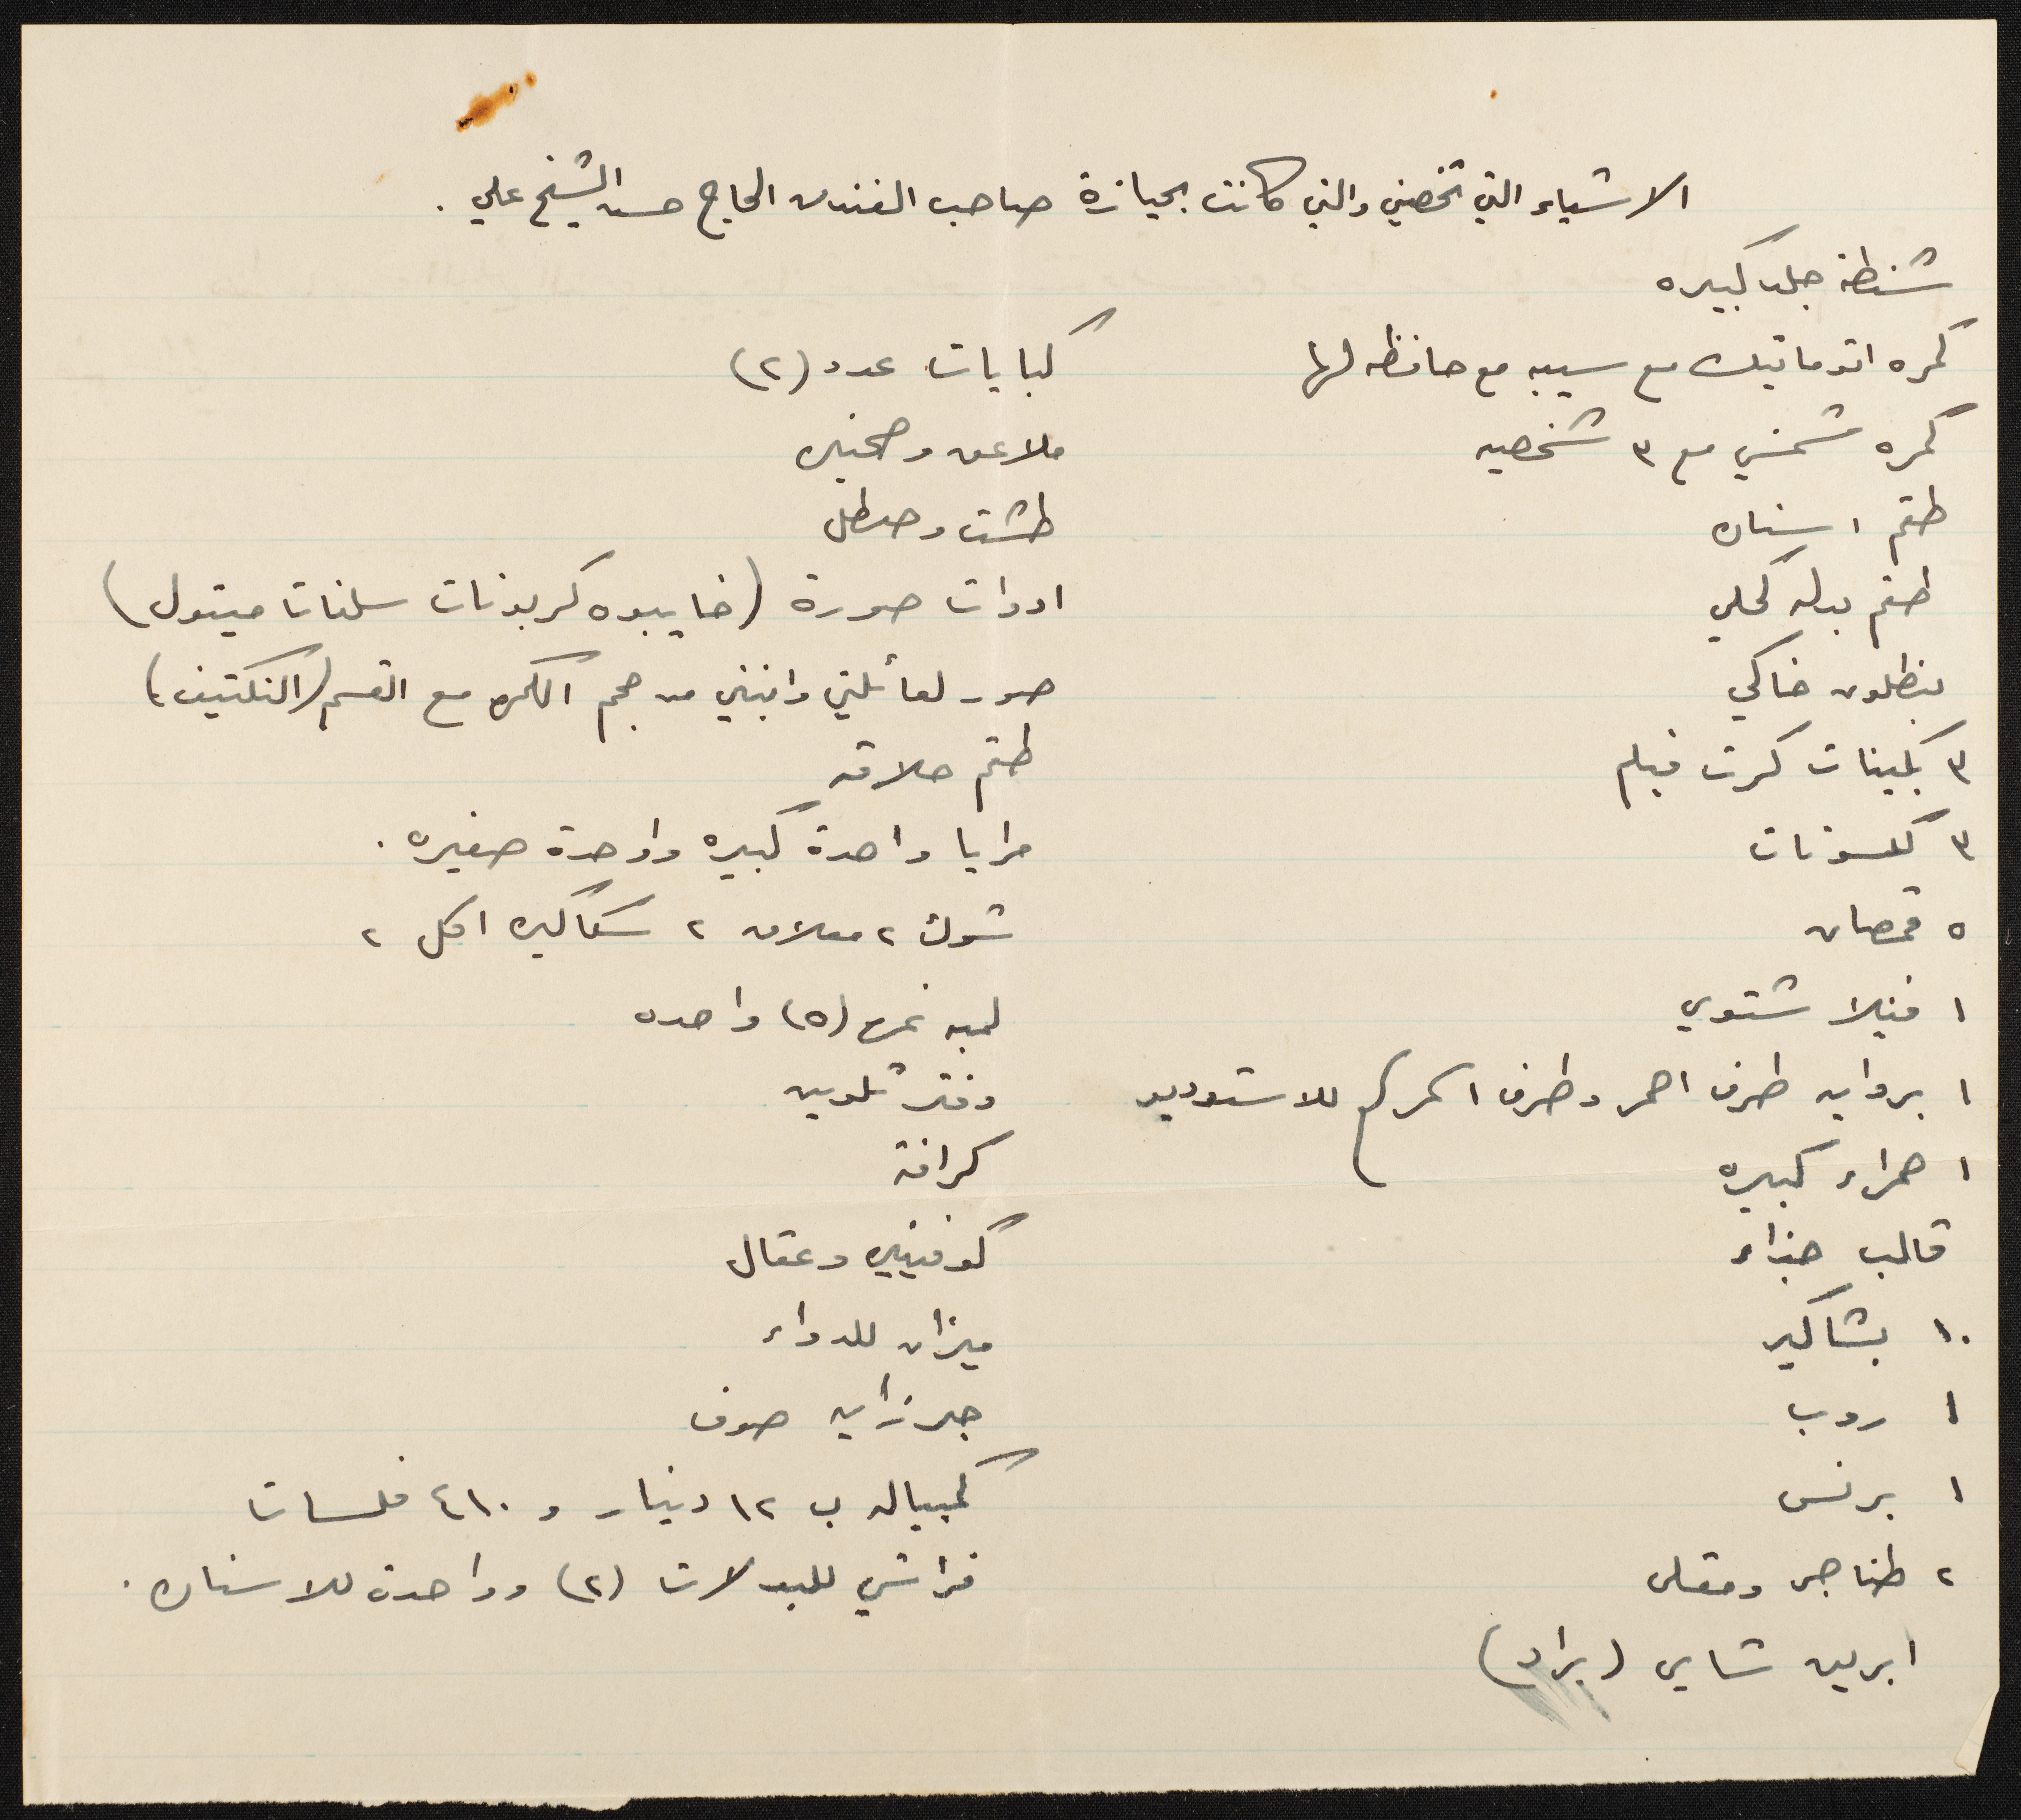 الاشياء التي تخصني والتي كانت بحيازة صاحب الفندق الحاج حسن الشيخ علي .
شنطة جلد كبيره
كمره اتوماتيك مع سيبه مع حافظه لها
كمره شمسي مع ٣ شخصيه
طقم اسنان
طقم بدله كحلي
بنطلون خاكي
٣ بكيتات كرت فيلم
٣ كلسونات
٥ قمصان
١ فنيلا شتوي
١ بردايه طرف احمر وطرف اسمر للاستوديو
١ حمراء كبيره
قالب حذاء
١٠ بشاكير
١ روب
١ برنس
٢ طناجر ومقلى
ابريق شاي (براد)
كبايات عدد (٢)
ملاعق وصحنين
طشت وسطل
ادوات صورة (خايبوه كربونات سلفات ميتول)
صور لعائلتي وابنتي من حجم الكمره مع القسم (النكتيف)
طقم حلاقه
مرايا واحدة كبيره وواحدة صغيره .
شوك ٢ معلاق ٢ سكاكين اكل ٢
لمبه نمره (٥) واحده
دفتر تلوين
كرافة
كوفيتين وعقال
ميزان للدواء
جرزايه صوف
كمبياله ب ١٢ دينار و ٤١٠ فلسات
فراشي للبدلات (٢) وواحدة للاسنان .